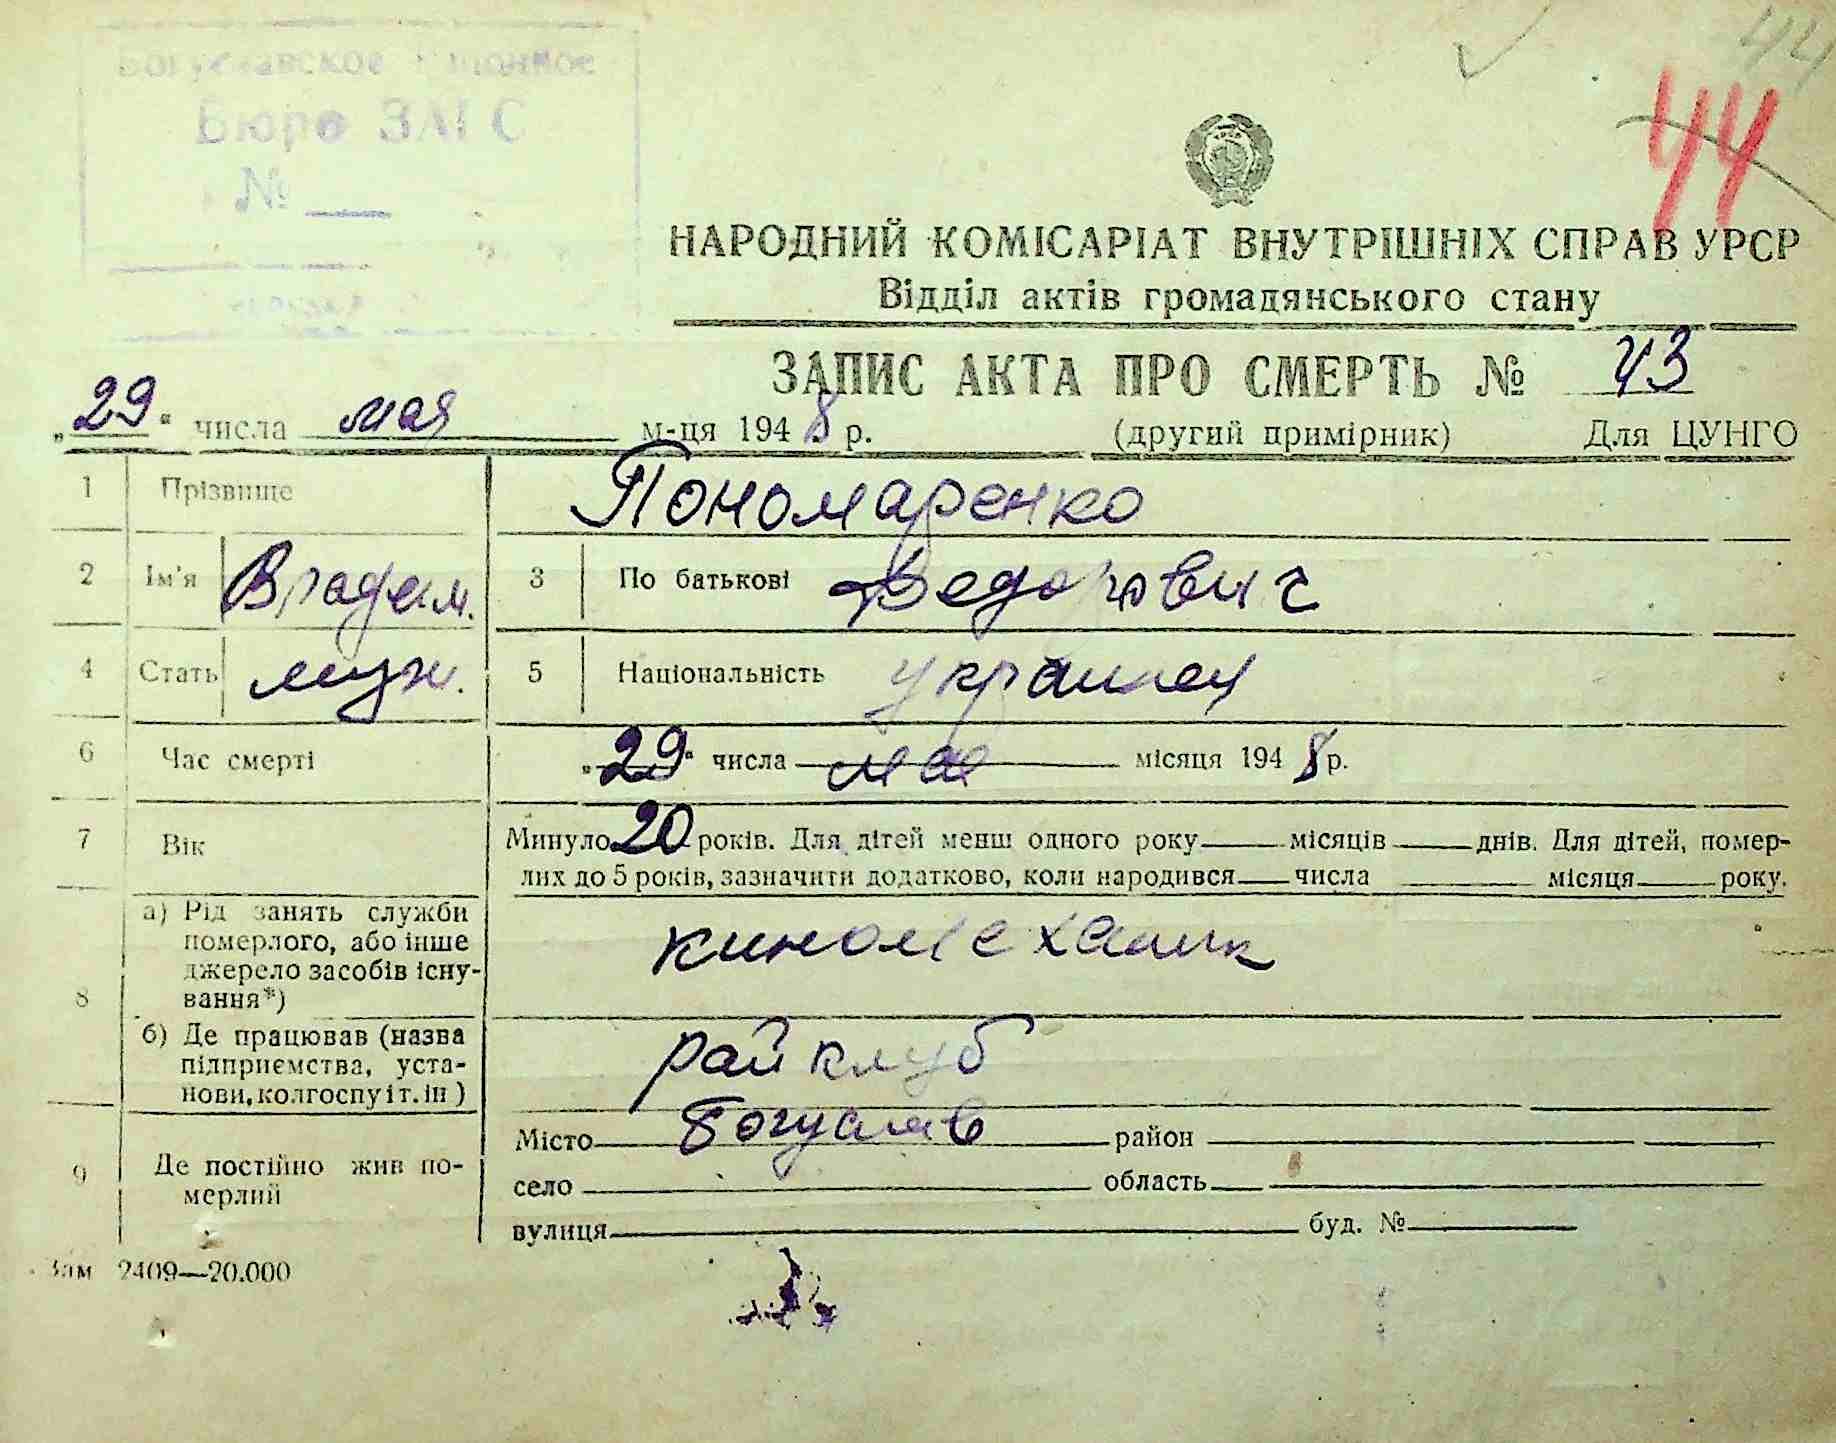 44
44
Бюро ЗАГС
№
НАРОДНИЙ КОМІСАРІАТ ВНУТРІШНІХ СПРАВ УРСР
Відділ актів громадянського стану
ЗАПИС АКТА ПРО СМЕРТЬ № 43
„29“ числа мая м-ця 1948 р. (другий примірник) Для ЦУНГО
1 Прізвище Пономаренко
2 Ім'я Владим. 3 По батькові Федорович
4 Стать муж. 5 Національність украинец
6 Час смерті „29“ числа мая місяця 1948 р.
7 Вік Минуло 20 років. Для дітей менш одного року місяців днів. Для дітей, помер-
лих до 5 років, зазначити додатково, коли народився числа місяця року.
8 а) Рід занять служби
померлого, або інше
джерело засобів існу-
вання*) киномеханик
б) Де працював (назва
підприємства, уста-
нови, колгоспу і т. ін) райклуб
9 Де постійно жив по-
мерлий
Місто Богуслав район
село область
вулиця буд. №
Зам 2409—20.000